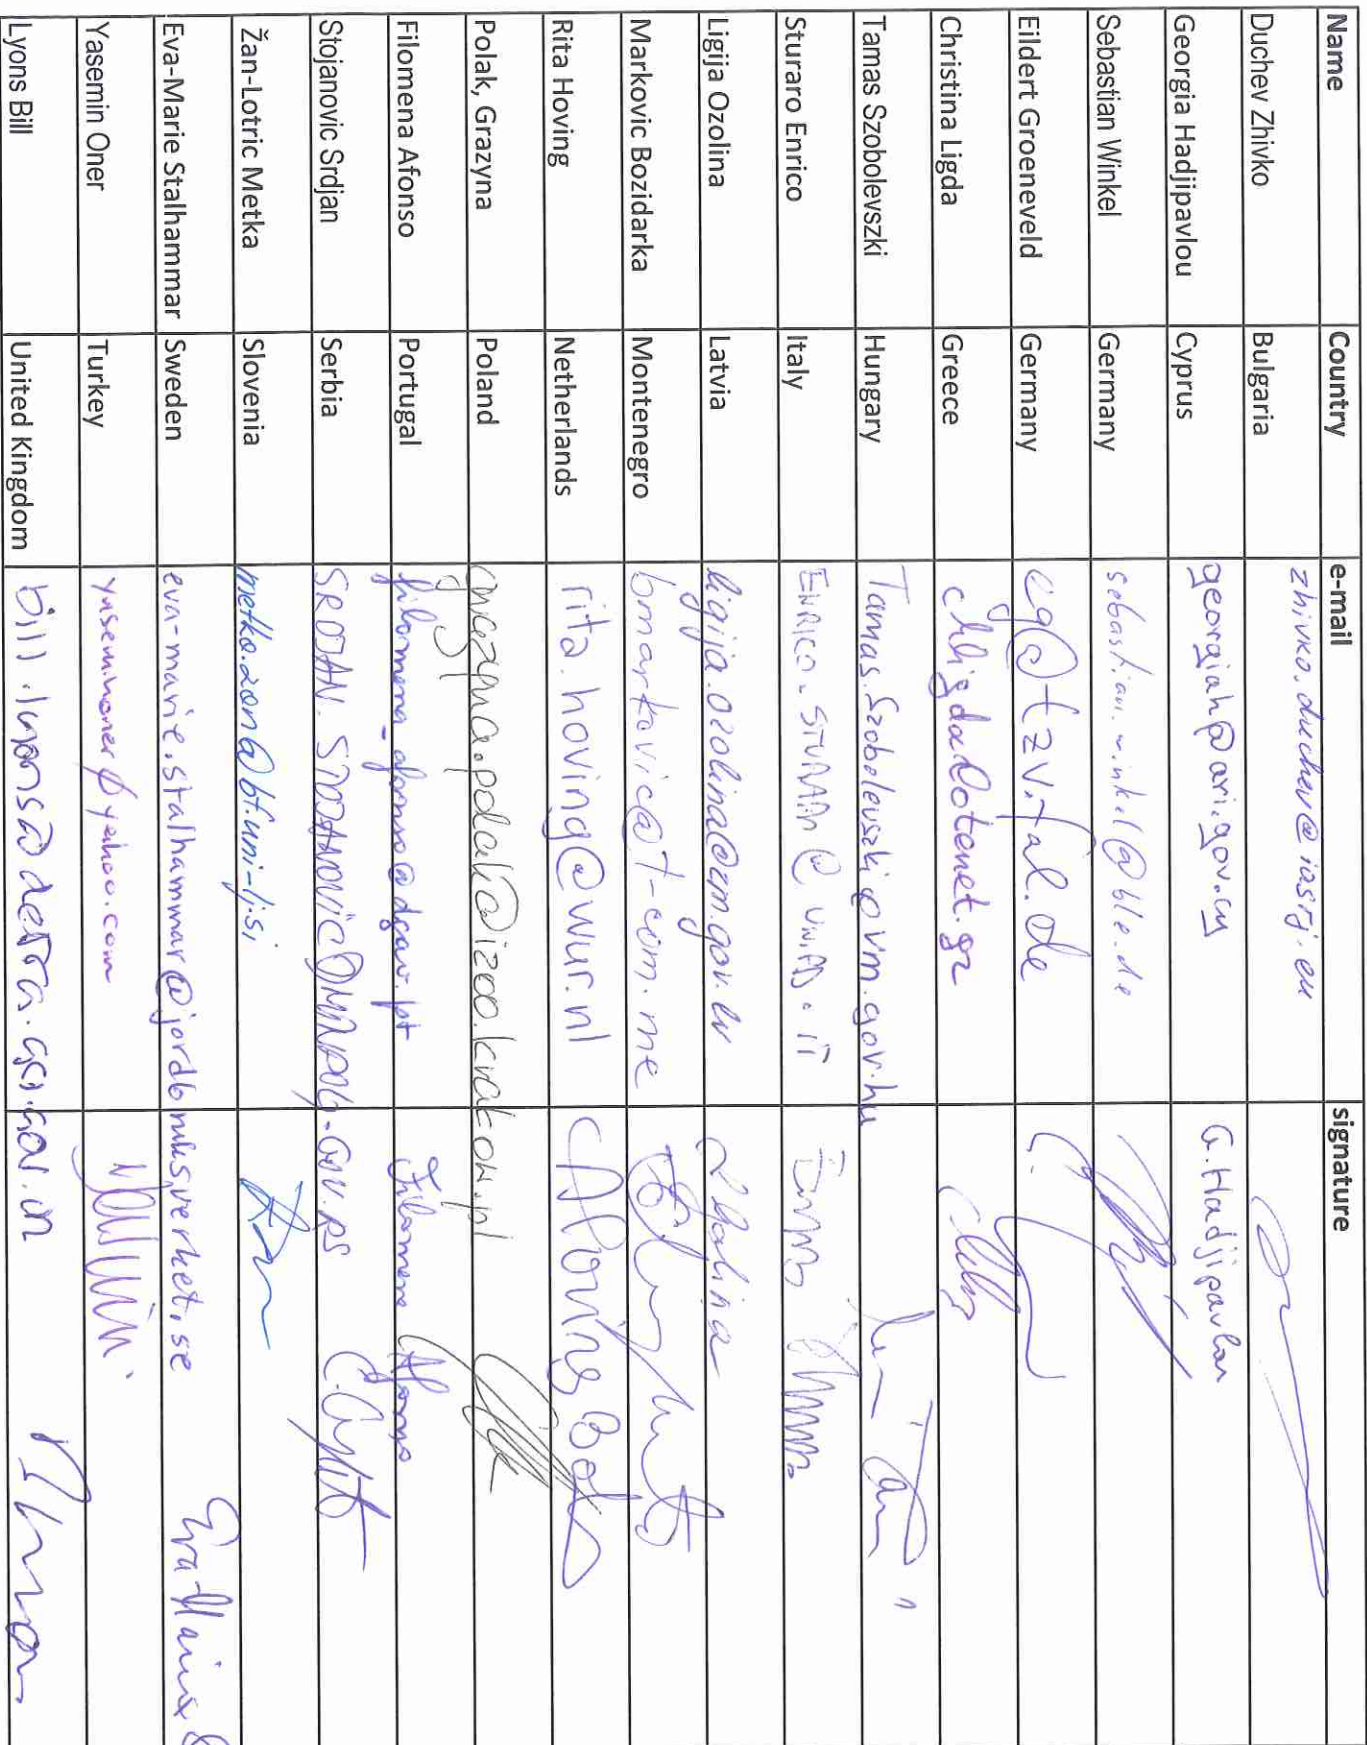 Name Country e-mail signature
Duchev Zhivko Bulgaria zhivko.duchev@iasrj.eu
Georgia Hadjipavlou Cyprus georgiah@ari.gov.cy G. Hadjipavlou
Sebastian Winkel Germany sebastian.winkel@ble.de
Eildert Groeneveld Germany eg@tzv.fal.de
Christina Ligda Greece chligda@otenet.gr
Tamas Szobolevszki Hungary Tamas.Szobolevszki@vm.gov.hu
Sturaro Enrico Italy ENRICO.STURARO@UNIPD.IT
Ligija Ozolina Latvia ligija.ozolina@zm.gov.lv
Markovic Bozidarka Montenegro bmarkovic@t-com.me
Rita Hoving Netherlands rita.hoving@wur.nl
Polak, Grazyna Poland grazyna.polak@izoo.krakow.pl
Filomena Afonso Portugal filomena_afonso@dgav.pt Filomena Afonso
Stojanovic Srdjan Serbia
Žan-Lotric Metka Slovenia metka.zan@bf.uni-lj.si
Eva-Marie Stalhammar Sweden eva-marie.stalhammar@jordbruksverket.se
Yasemin Oner Turkey yaseminoner@yahoo.com
Lyons Bill United Kingdom